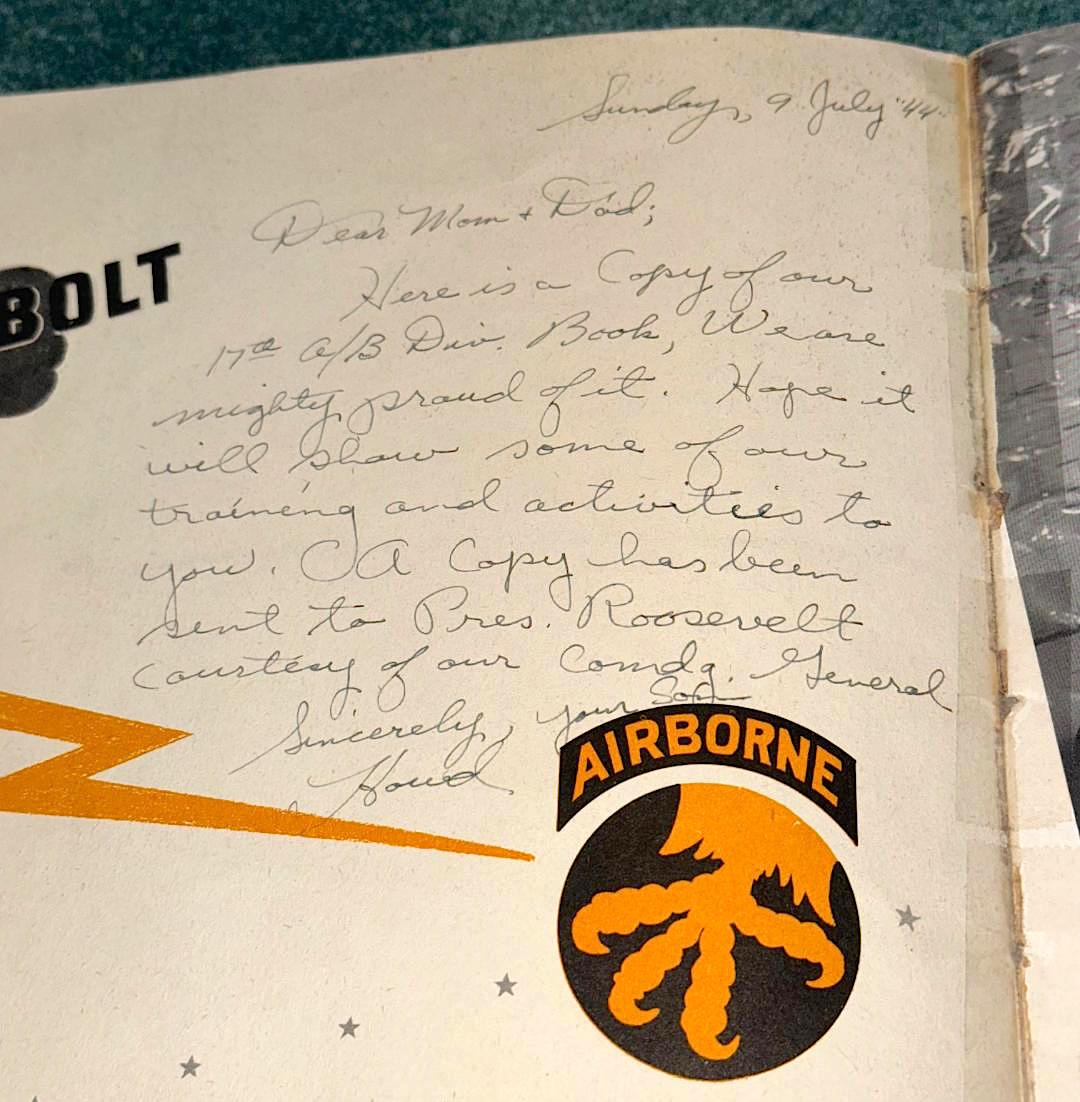 Sunday, 9 July "44"
Dear Mom + Dad;
BOLT
Here is a Copy of our
17th A/B Div. Book, We are
mighty proud of it. Hope it
will show some of our
training and activities to
you. A Copy has been
sent to Pres. Roosevelt
Courtesy of our Comdg. General
Sincerely, your Son
AIRBORNE